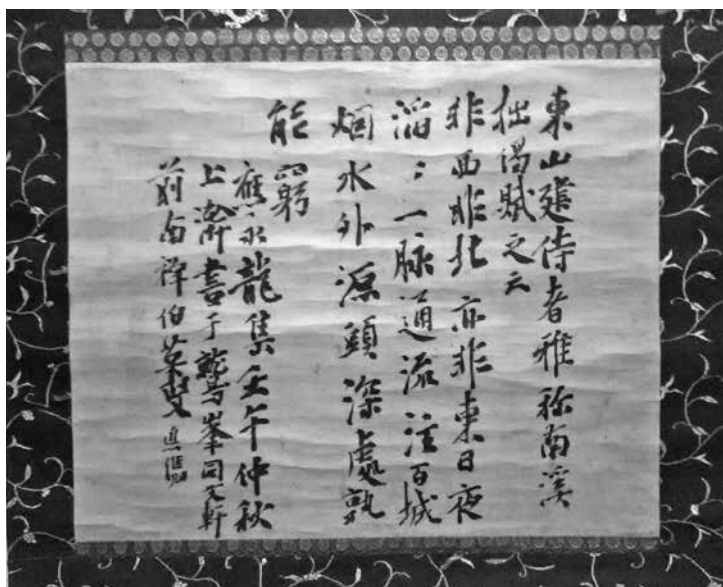 東山侍者雅称南溪
拙偈賦之云
非西非北亦非東日夜
滔〻一脉通流注百城
烟水外源頭深處孰
能窮
應永龍集壬午仲秋
上澣書于鷲峯軒
前南禅伯英叟惪儁